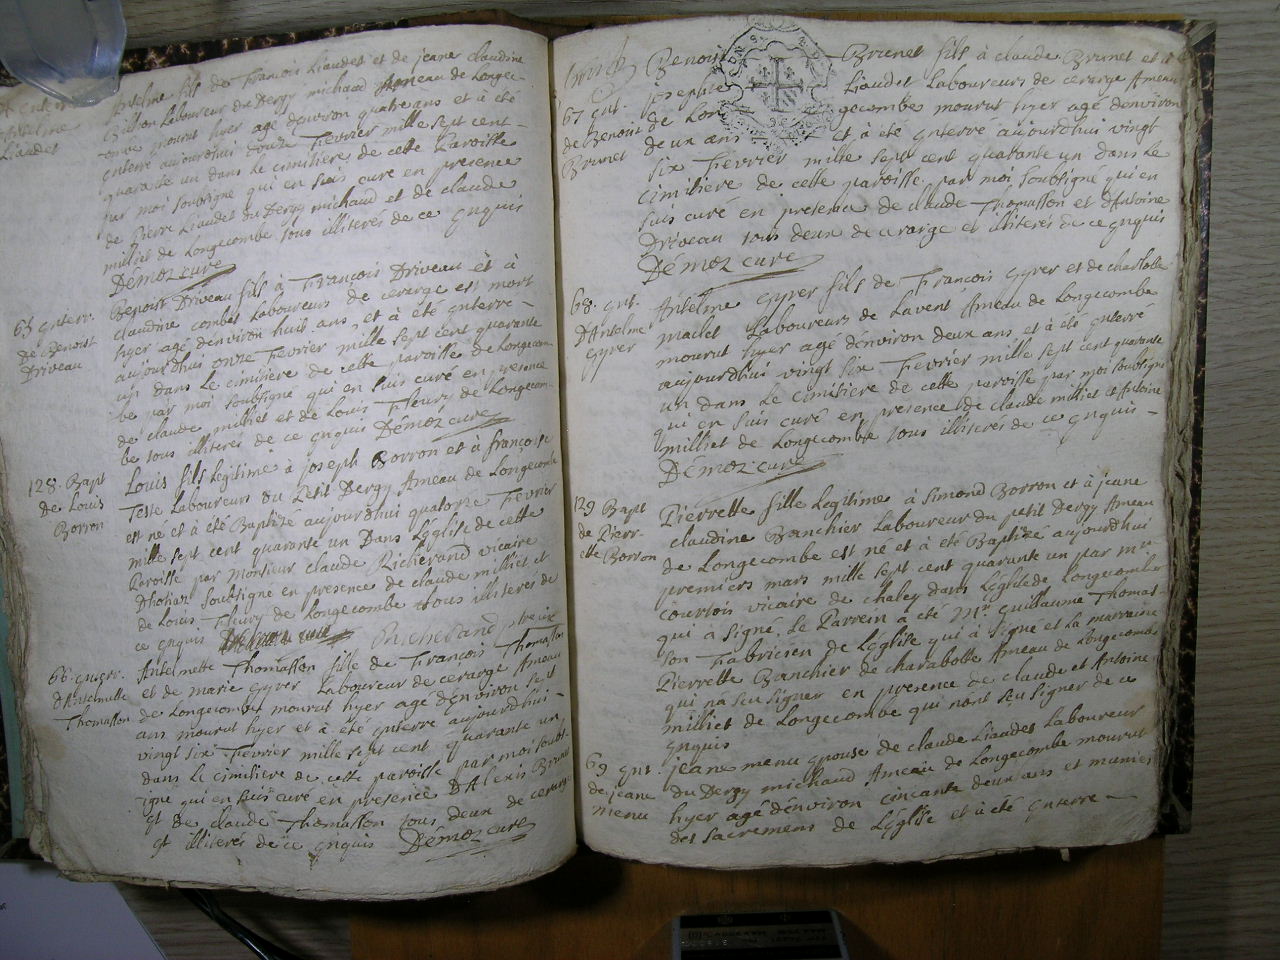 Antelme
Liaudet
Antelme fils de François Liaudet et de jeane claudine
Buillon Laboureur du Dergy michaud Ameau de Longec-
-onve mourut hyer agé denviron quatre ans et à été
gnterré aujourdhui douze Fievrier mille sept cent-
quarante un dans le cimiliere de cette Paroisse
par moi soubsigné qui en suis curé en presence
de Pierre Liaudet du Dergy michaud et de claude
milliet de Longecombe tous illiterés de ce gnquis
Démoz curé
65 gnterr.
de Benoist
Driveau
Benoist Driveau fils à François Driveau et à
claudine combet Laboureurs de cerarge est mort
hyer agé denviron huit ans, et à été gnterre-
aujourdhui onze Fievrier mille sept cent quarante
un dans Le cimiliere de cette paroisse de Longecom-
be par moi soubsigné qui en suis curé en presence
de claude milliet et de Louis Fleury de Longecom-
be tous illiterés de ce gnquis Démoz curé
128. Bapt
de Louis
Borron
Louis fils legitime à joseph Borron et à francoise
Teste Laboureurs du Petit Dergy Ameau de Longecombe
est né et à été Baptizé aujourdhui quatorze Fievrier
mille sept cent quarante un Dans L'église de cette
Paroisse par Monsieur claude Richerand vicaire
Dhotiaz soubsigné en presence de claude milliet et
de Louis Fleury de Longecombe tous illiterés de
ce gnquis Richerand ptre vic
66. gnterr.
d'Antelmette
Thomasson
Antelmette Thomasson fille de François Thomasson
et de marie gyrer Laboureur de cerarge Ameau
de Longecombe mourut hyer agé denviron sept
ans mourut hyer et à été gnterre aujourdhui-
vingt six Fievrier mille sept cent quarante un
dans le cimiliere de cette paroisse par moi soubs-
igné qui en suis curé en presence D'Alexis Brunet
et de claude Thomasson tous deux de cerarge
et illiterés de ce gnquis Démoz curé
67 gnt.
de Benoist
Brunet
Benoist Brunet fils à claude Brunet et à
josephte Liaudet Laboureurs de cerarge Ameau
de Lon gecombes mourut hyer agé denviron
deux ans et à été gnterré aujourdhui vingt
six Fievrier mille sept cent quarante un dans le
cimiliere de cette paroisse par moi soubsigné qui en
suis curé en presence de claude Thomasson et d'Antoine
Driveau tous deux de cerarge et illiterés de ce gnquis
Démoz curé
68. gnt.
D'Antelme
gyrer
Antelme gyrer fils de François gyrer et de charlotte
maclet Laboureurs de Lavent Ameau de Longecombe
mourut hyer agé denviron deux ans et à été gnterré
aujourdhui vingt six Fievrier mille sept cent quarante
un dans le cimiliere de cette paroisse par moi soubsigné
qui en suis curé en presence de claude milliet et Antoine
milliet de Longecombe tous illiterés de ce gnquis-
Démoz curé
129 Bapt
de Pierr-
ette Borron
Pierrette fille legitime à Simond Borron et à jeane
claudine Banchier Laboureur du petit Dergy Ameau
de Longecombe est né et à été Baptizé aujourdhui
premiers mars mille sept cent quarante un par mr
courtois vicaire de chaley dans L'églide de Longecombe
qui à signé. Le Parrein à été Mr Guillaume Thomas-
son Fabricien de L'église qui à signe et la marraine
Pierrette Banchier de charabotte Ameau de Longecombe
qui na seu signer en presence de claude et Antoine
milliet de Longecombe qui n'ont seu signer de ce
gnquis
69 gnt.
de jeane
menu
jeane menu gpouse de claude Liaudes Laboureur
du Dergy michaud Ameau de Longecombe mourut
hyer agé denviron cincante deux ans et munies
des sacremens de L'église et à été gnterre-